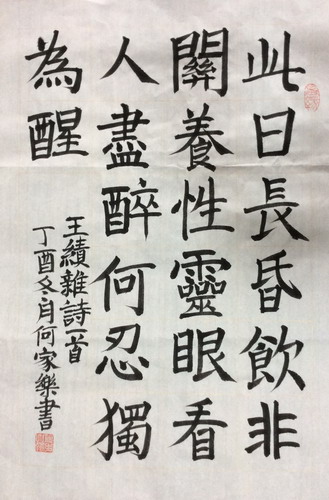 此日長昏飲非
關養性靈眼看
人盡醉何忍獨
為醒
王績雜詩一首
丁酉冬月何家樂書